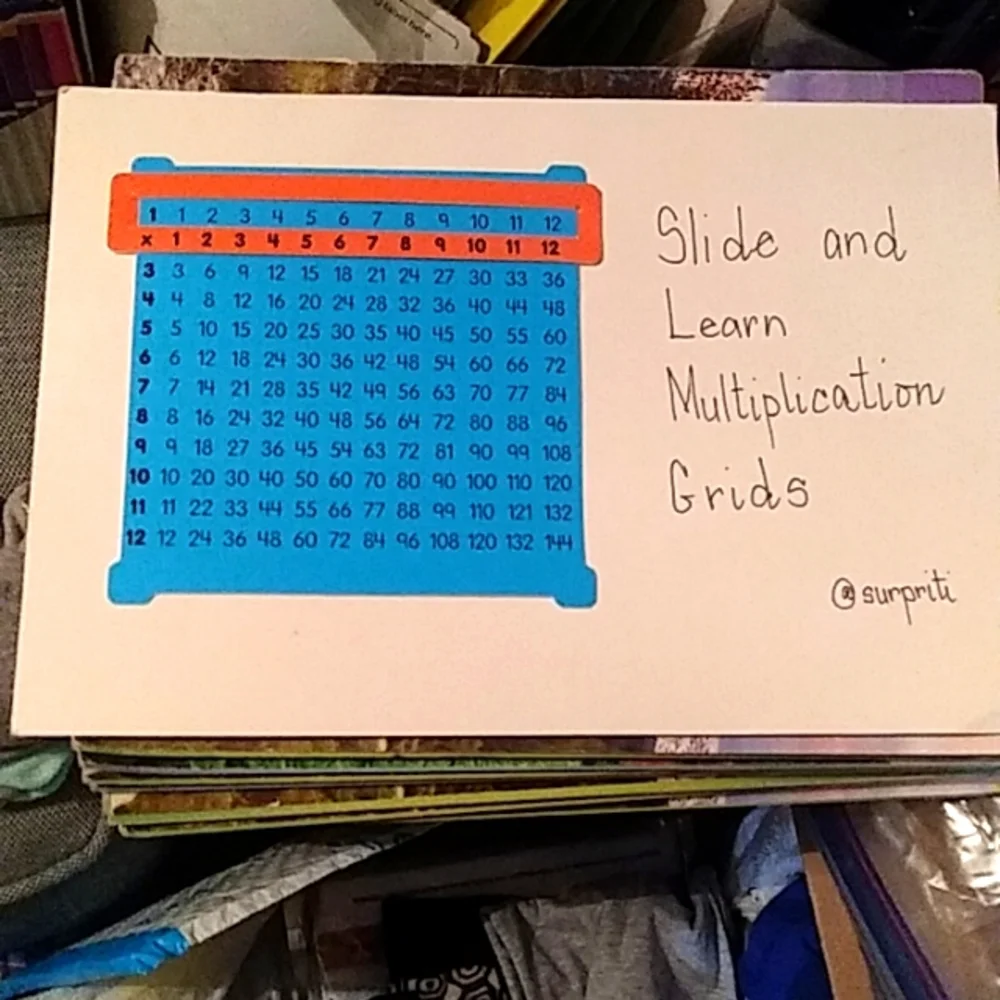 1 1 2 3 4 5 6 7 8 9 10 11 12
x 1 2 3 4 5 6 7 8 9 10 11 12
3 3 6 9 12 15 18 21 24 27 30 33 36
4 4 8 12 16 20 24 28 32 36 40 44 48
5 5 10 15 20 25 30 35 40 45 50 55 60
6 6 12 18 24 30 36 42 48 54 60 66 72
7 7 14 21 28 35 42 49 56 63 70 77 84
8 8 16 24 32 40 48 56 64 72 80 88 96
9 9 18 27 36 45 54 63 72 81 90 99 108
10 10 20 30 40 50 60 70 80 90 100 110 120
11 11 22 33 44 55 66 77 88 99 110 121 132
12 12 24 36 48 60 72 84 96 108 120 132 144
Slide and
Learn
Multiplication
Grids
@surpriti